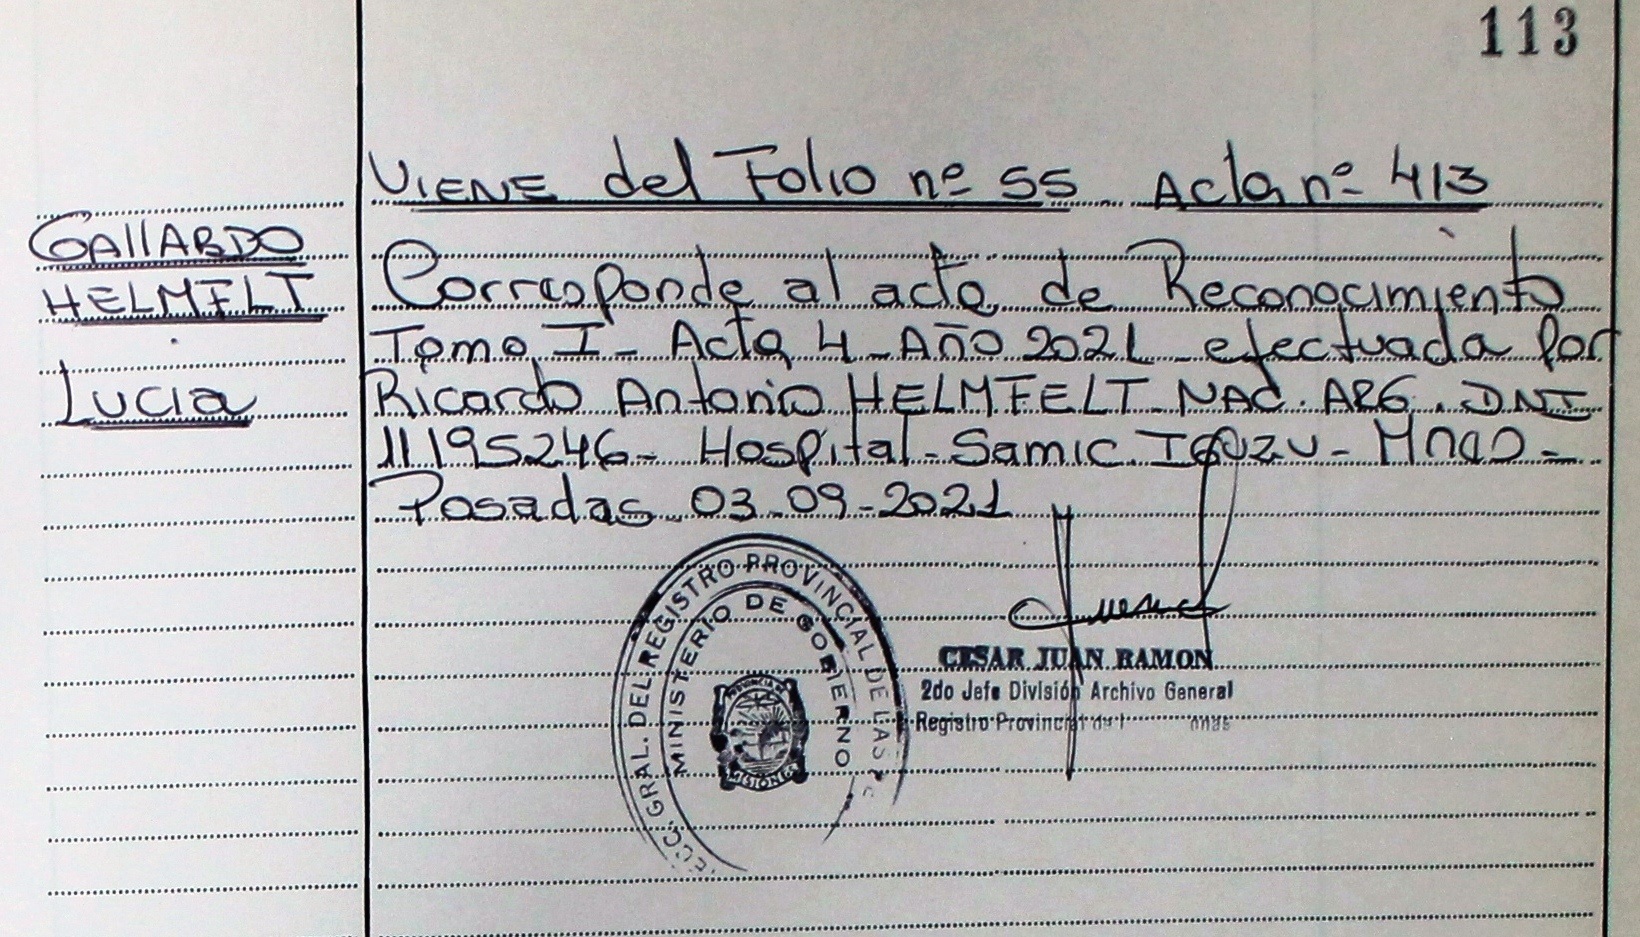 113
VIENE del Folio nº 55 Acta nº 413
GALLARDO
HELMFLT
Lucia
Corresponde al acta de Reconocimiento
Tomo I - Acta 4 - Año 2021 efectuada por
Ricardo Antonio HELMFELT - NAC. ARG. DNI
11195246 - Hospital - Samic. IGUZU -
Posadas 03-09-2021
ECC. GRAL. DEL REGISTRO PROVINCIAL DE LAS
MINISTERIO DE GOBIERNO
PROVINCIA DE
MISIONES
CESAR JUAN RAMON
2do Jefe División Archivo General
Registro Provincial de l onas